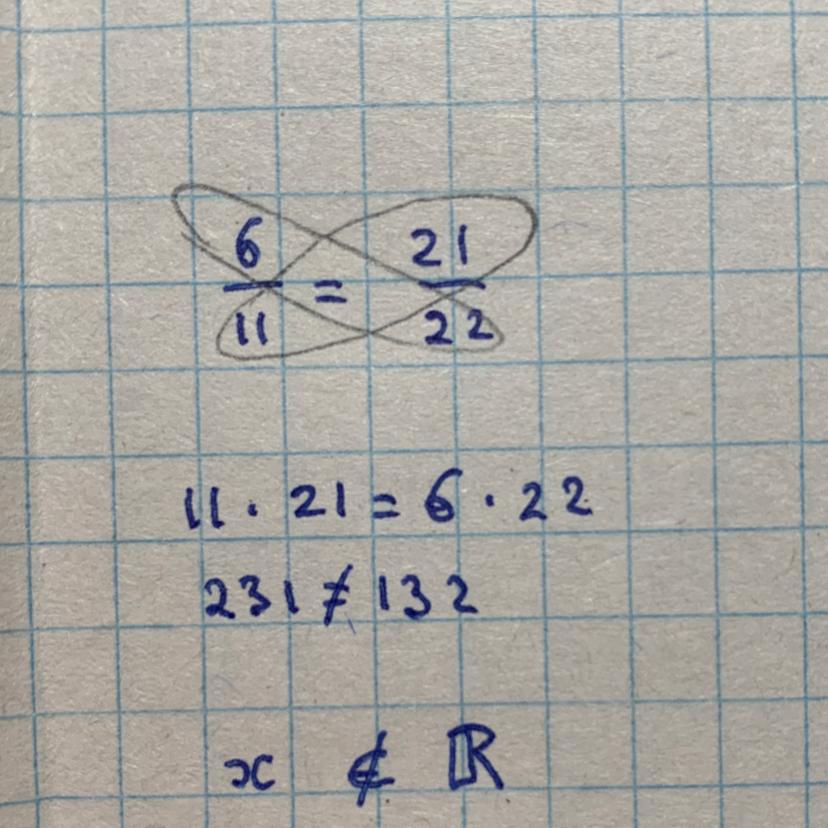 6/11 = 21/22
11 · 21 = 6 · 22
231 ≠ 132
x ∉ ℝ